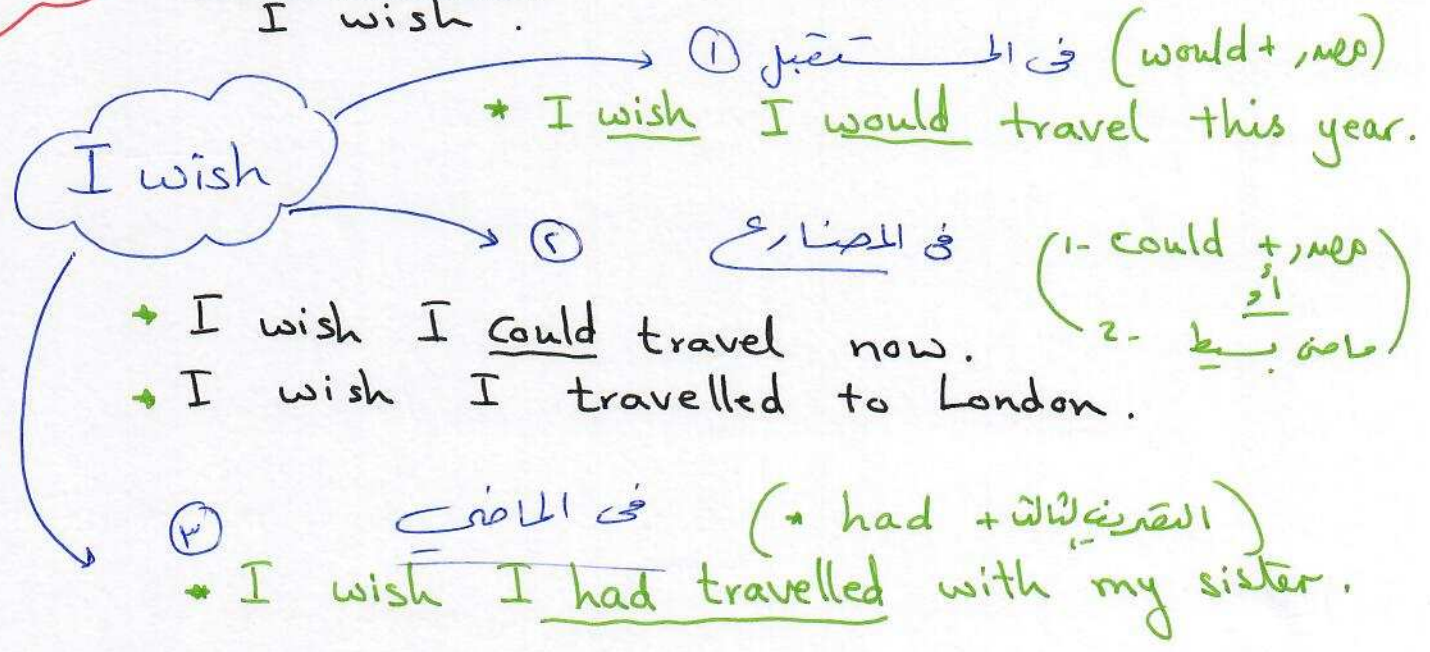 I wish .
① فى المستقبل (would + مصدر)
* I wish I would travel this year.
I wish
② فى المضارع (1- could + مصدر
أو
2- ماضى بسيط)
I wish I could travel now.
I wish I travelled to London.
③ فى الماضى (* had + التصريف الثالث)
* I wish I had travelled with my sister.